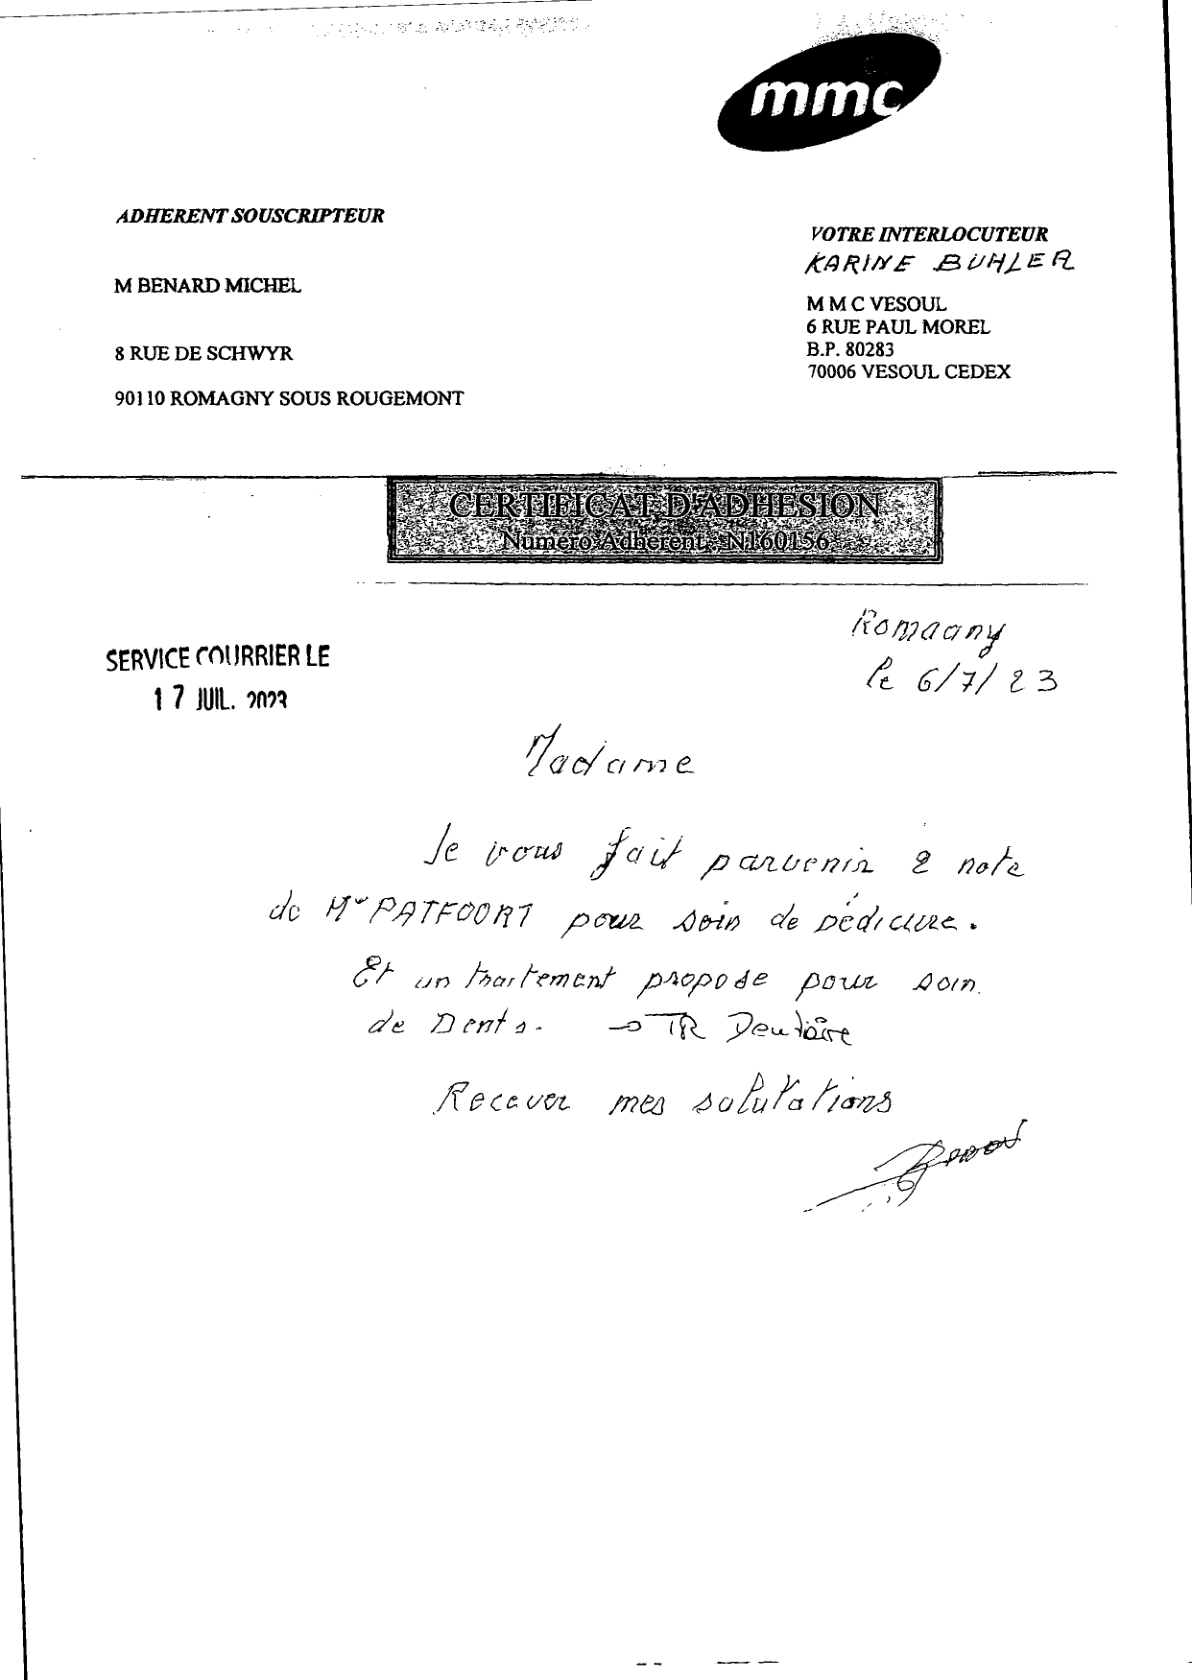 mmc
ADHERENT SOUSCRIPTEUR
M BENARD MICHEL
8 RUE DE SCHWYR
90110 ROMAGNY SOUS ROUGEMONT
VOTRE INTERLOCUTEUR
KARINE BUHLER
M M C VESOUL
6 RUE PAUL MOREL
B.P. 80283
70006 VESOUL CEDEX
CERTIFICAT D'ADHESION
Numéro Adhérent : N160156
SERVICE COURRIER LE
17 JUIL. 2023
Romagny
le 6/7/23
Madame
Je vous fait parvenir 2 note
de Mr PATFOORT pour soin de pédicure.
Et un traitement propose pour soin
de Dents. → TR Dentaire
Recever mes salutations